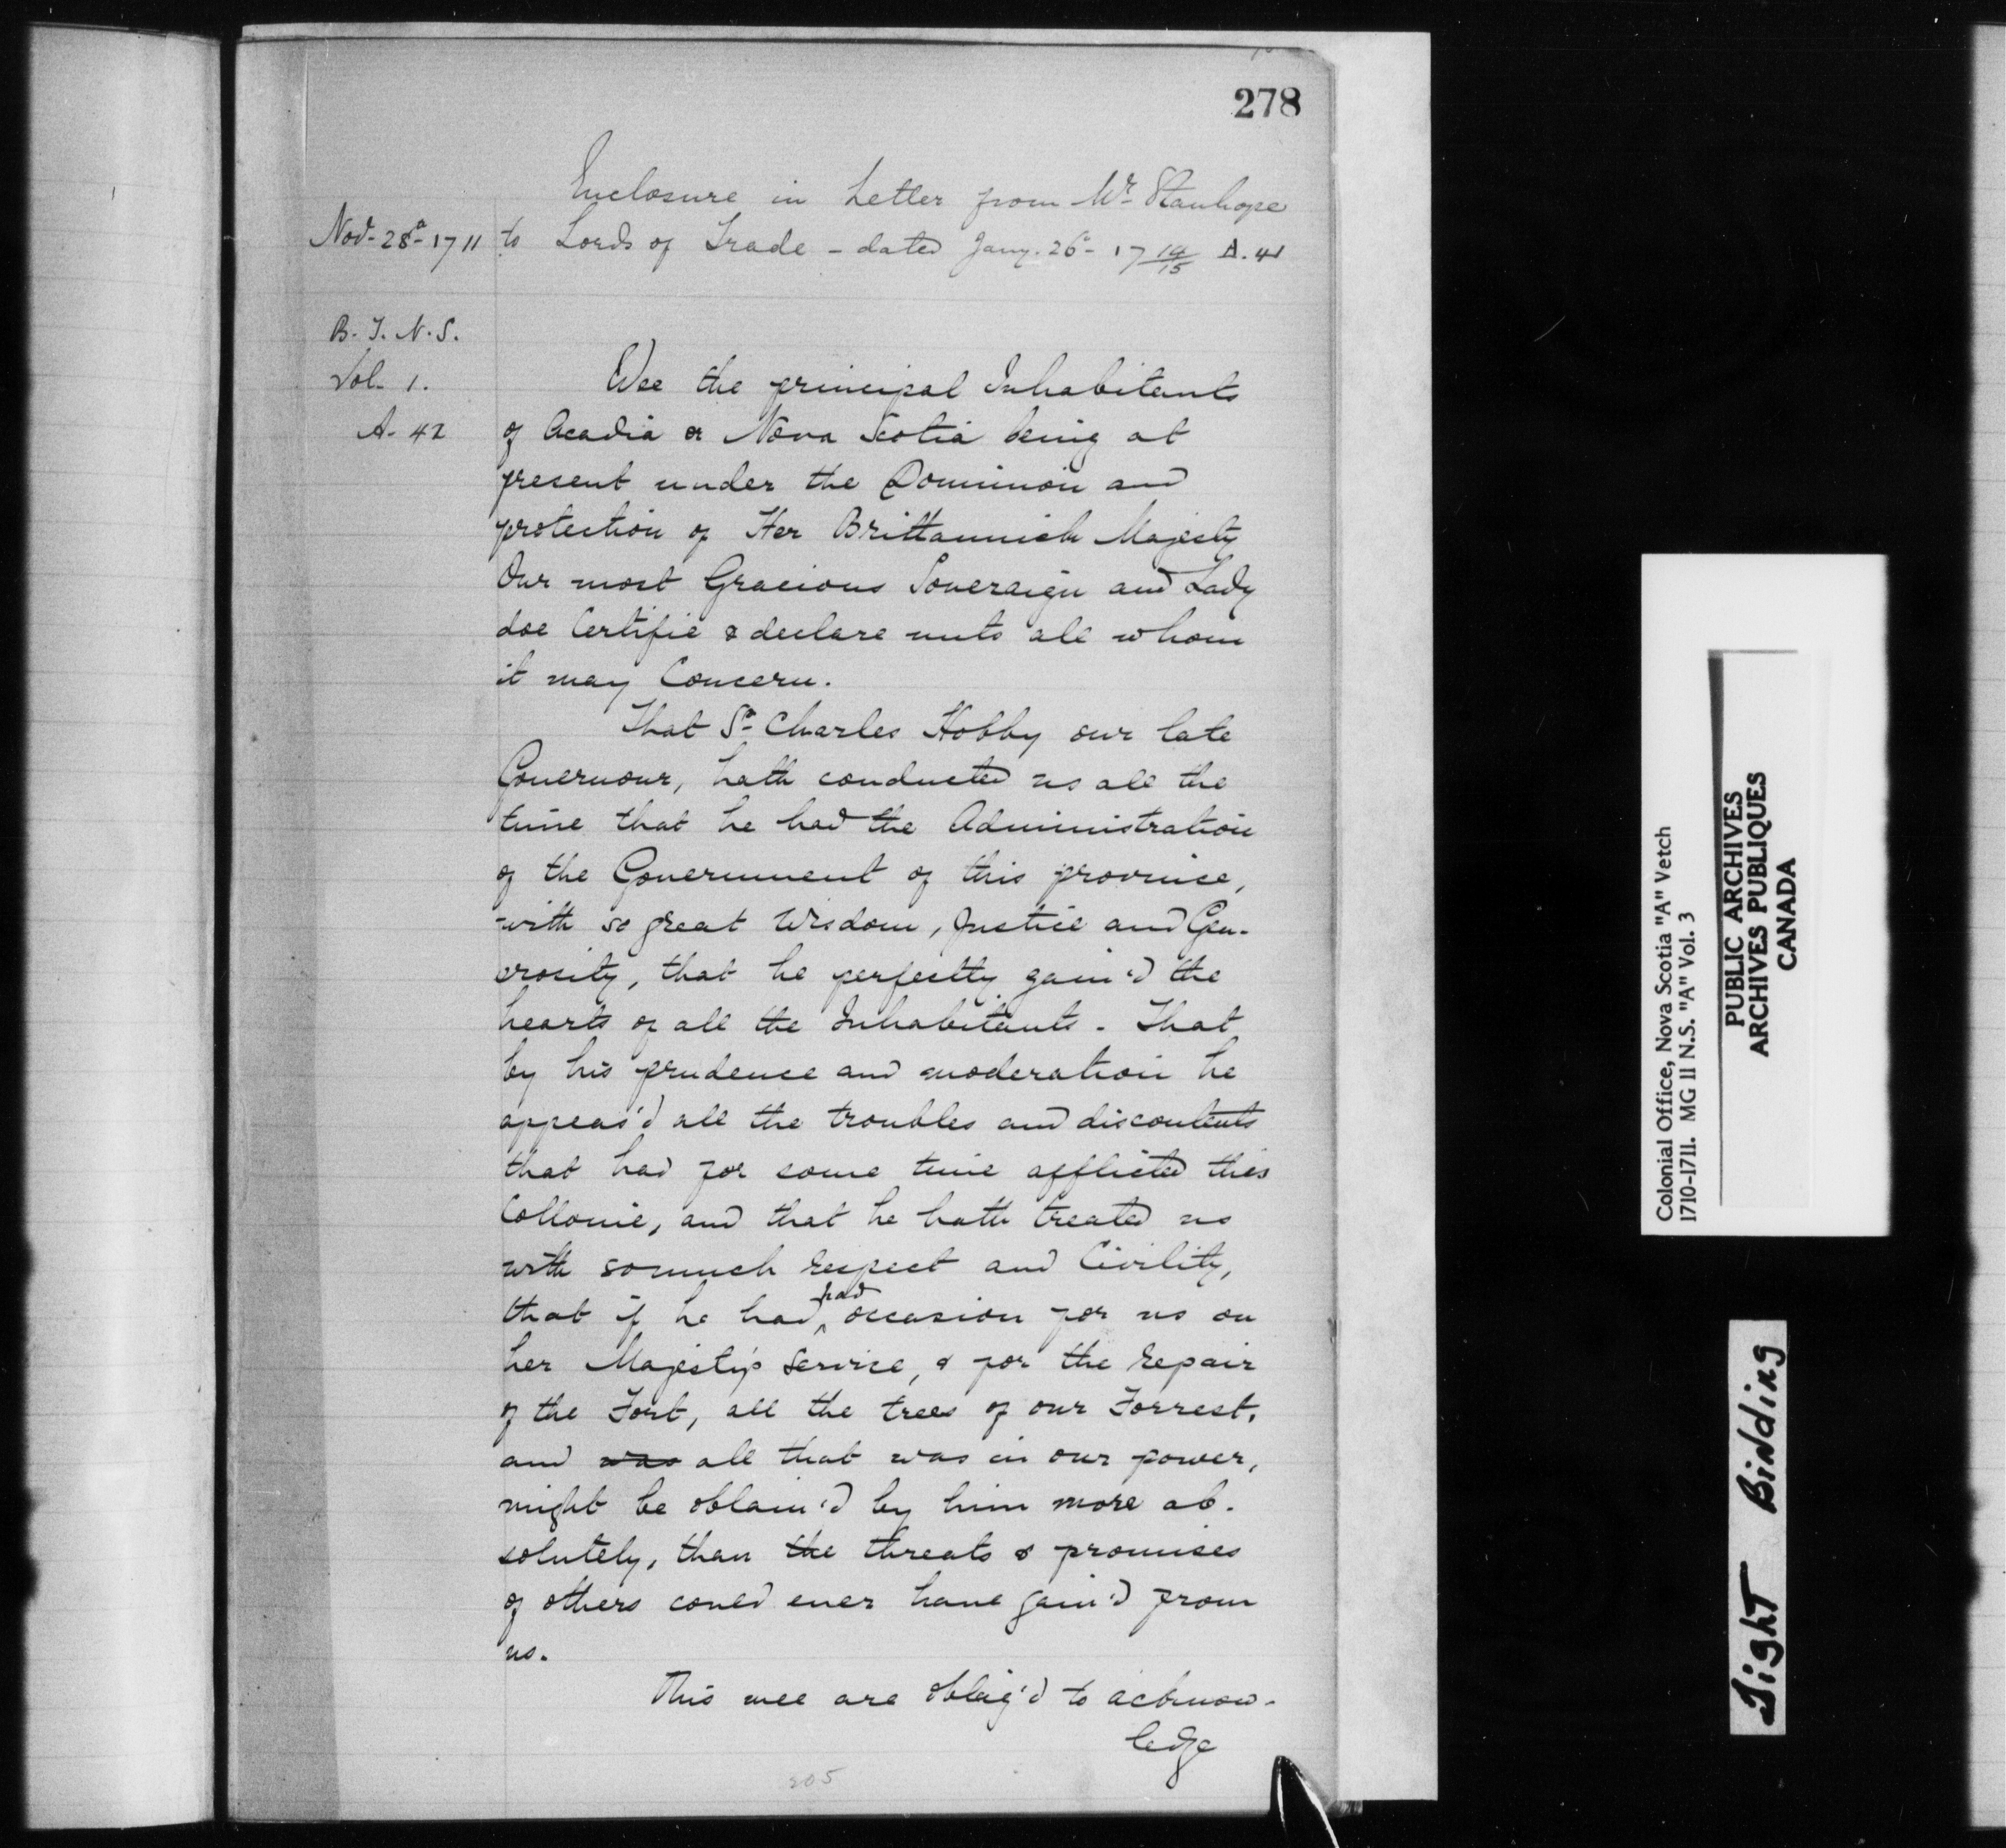 278
Enclosure in Letter from Mr Stanhope
Nov- 28th- 1711 to Lords of Trade - dated Jany. 26th- 17 14/15 A. 41
B. T. N. S.
Vol- 1.
A- 42
Wee the principal Inhabitants
of Acadia or Nova Scotia being at
present under the Dominion and
protection of Her Brittannick Majesty
Our most Gracious Soveraign and Lady
doe Certifie & declare unto all whom
it may Concern.
That Sr Charles Hobby our late
Governour, hath conducted us all the
time that he had the Administration
of the Government of this province,
with so great Wisdom, Justice and Gen-
erosity, that he perfectly gain'd the
hearts of all the Inhabitants. That
by his prudence and moderation he
appeas'd all the troubles and discontents
that had for some time afflicted this
Collonie, and that he hath treated us
with somuch respect and Civility,
that if he had had occasion for us on
her Majesty's Service, & for the repair
of the Fort, all the trees of our Forrest,
and was all that was in our power,
might be obtain'd by him more ab-
solutely, than the threats & promises
of others could ever have gain'd from
us.
This wee are oblig'd to acknow-
ledge
205
Colonial Office, Nova Scotia "A" Vetch
1710-1711. MG 11 N.S. "A" Vol. 3
PUBLIC ARCHIVES
ARCHIVES PUBLIQUES
CANADA
Tight Bidding